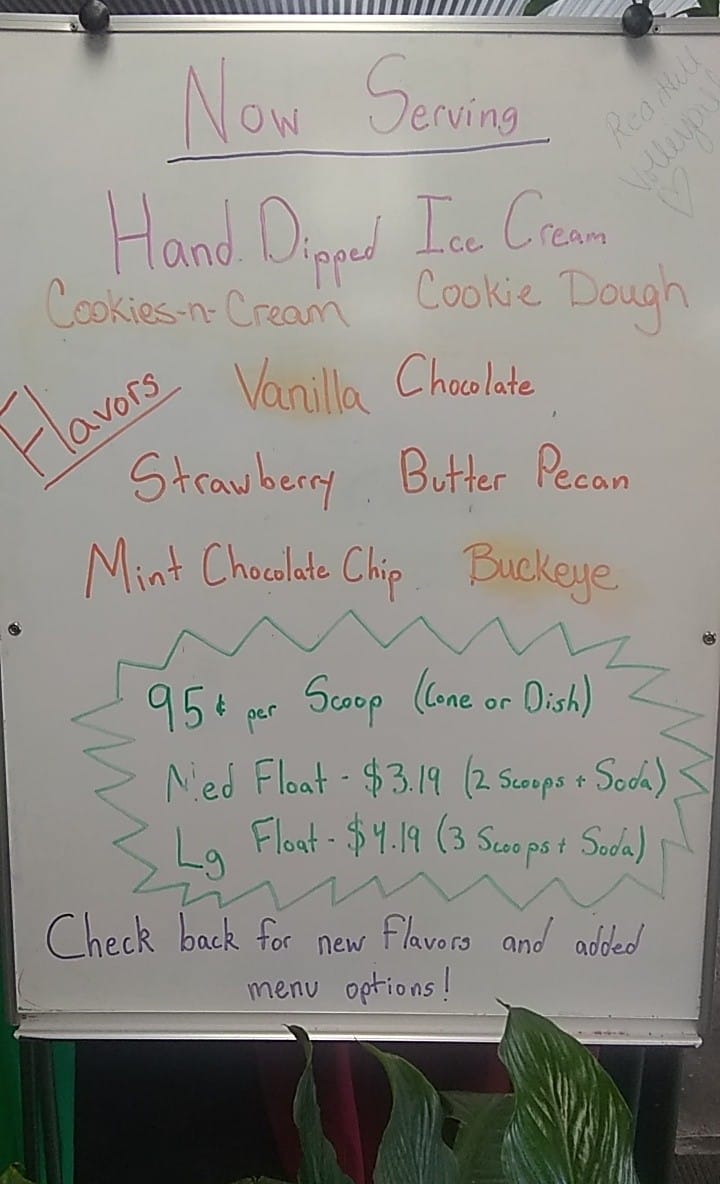 Now Serving
Hand Dipped Ice Cream
Cookies-n-Cream Cookie Dough
Flavors
Vanilla Chocolate
Strawberry Butter Pecan
Mint Chocolate Chip Buckeye
95¢ per Scoop (Cone or Dish)
Med Float - $3.19 (2 Scoops + Soda)
Lg Float - $4.19 (3 Scoops + Soda)
Check back for new Flavors and added
menu options!